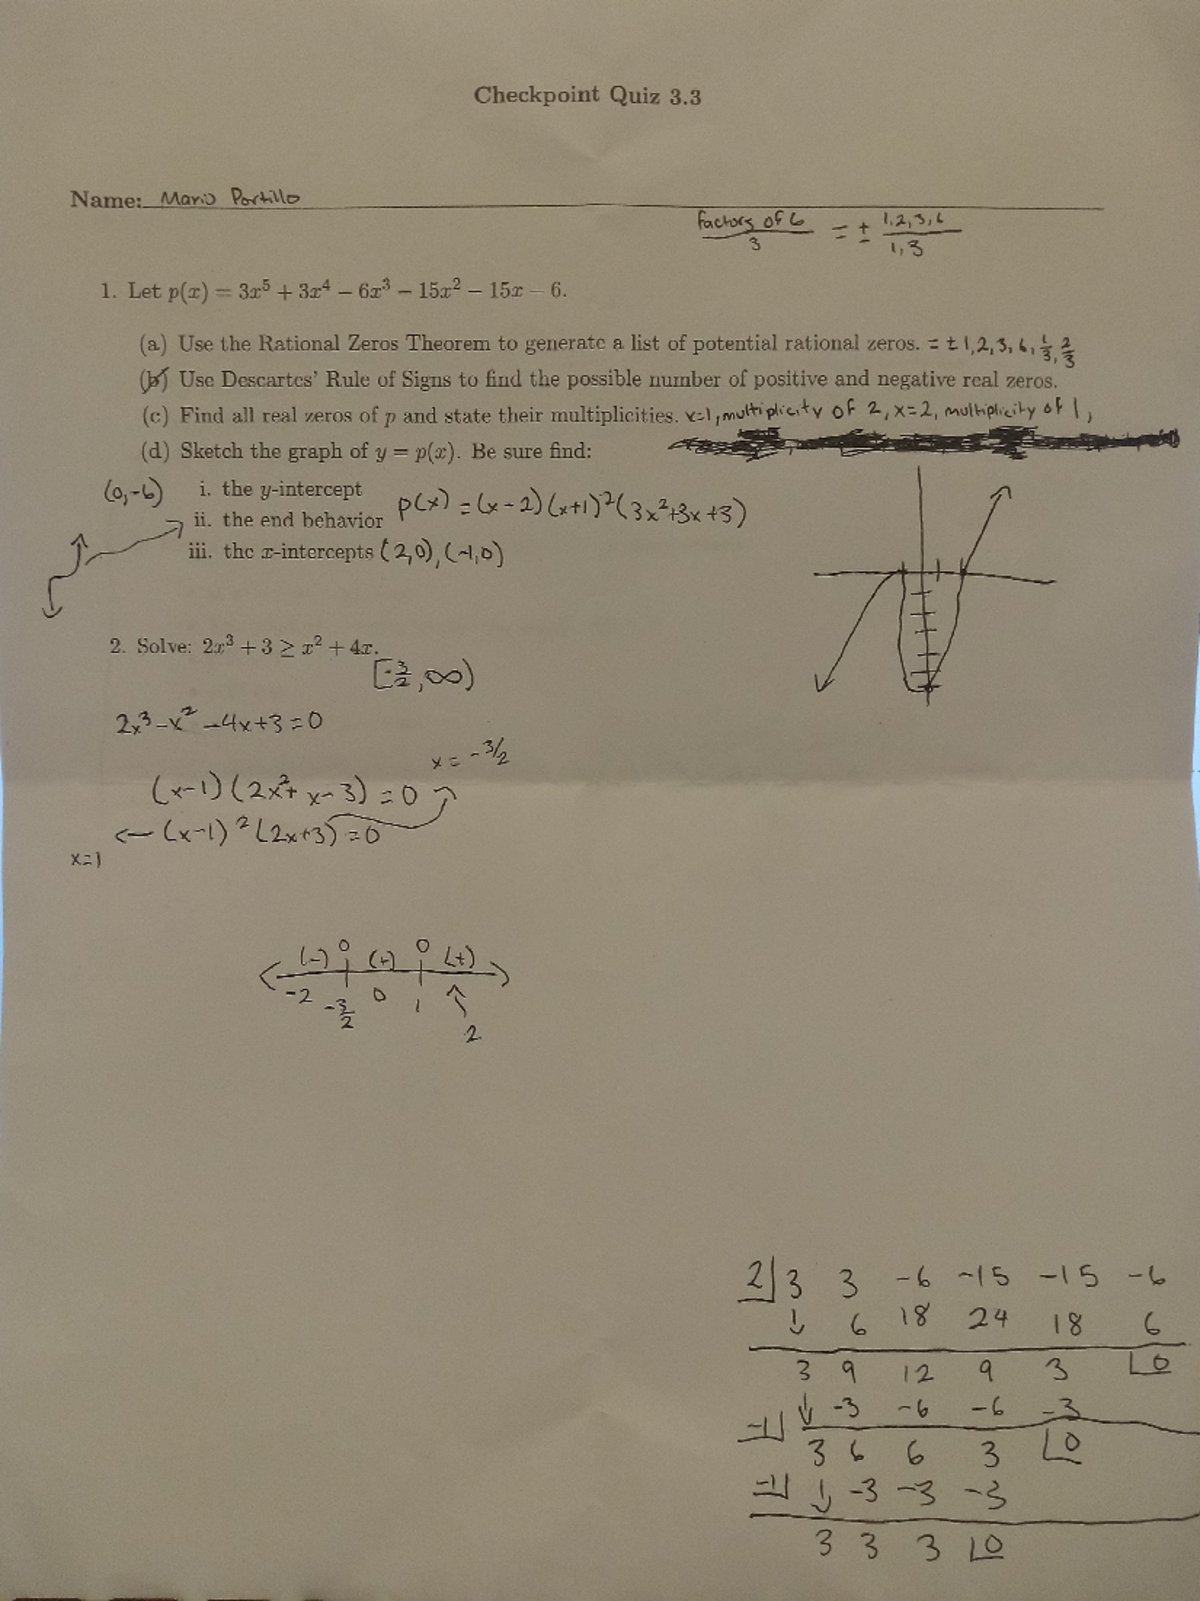 Checkpoint Quiz 3.3
Name: Mario Portillo
factors of 6 / 3 = ± 1,2,3,6 / 1,3
1. Let p(x) = 3x⁵ + 3x⁴ − 6x³ − 15x² − 15x − 6.
(a) Use the Rational Zeros Theorem to generate a list of potential rational zeros. = ± 1,2,3,6, 1/3, 2/3
(b) Use Descartes' Rule of Signs to find the possible number of positive and negative real zeros.
(c) Find all real zeros of p and state their multiplicities. x=1, multiplicity of 2, x=2, multiplicity of 1,
(d) Sketch the graph of y = p(x). Be sure find:
(0,-6) i. the y-intercept
ii. the end behavior p(x) = (x-2)(x+1)²(3x²+3x+3)
iii. the x-intercepts (2,0), (-1,0)
2. Solve: 2x³ + 3 ≥ x² + 4x.
[-3/2, ∞)
2x³-x²-4x+3=0
x = -3/2
(x-1)(2x²+x-3)=0
← (x-1)²(2x+3)=0
x=1
(-) 0 (+) 0 (+)
-2 -3/2 0 1 2
2 3 3 -6 -15 -15 -6
↓ 6 18 24 18 6
3 9 12 9 3 0
-1 ↓ -3 -6 -6 -3
3 6 6 3 0
-1 ↓ -3 -3 -3
3 3 3 0